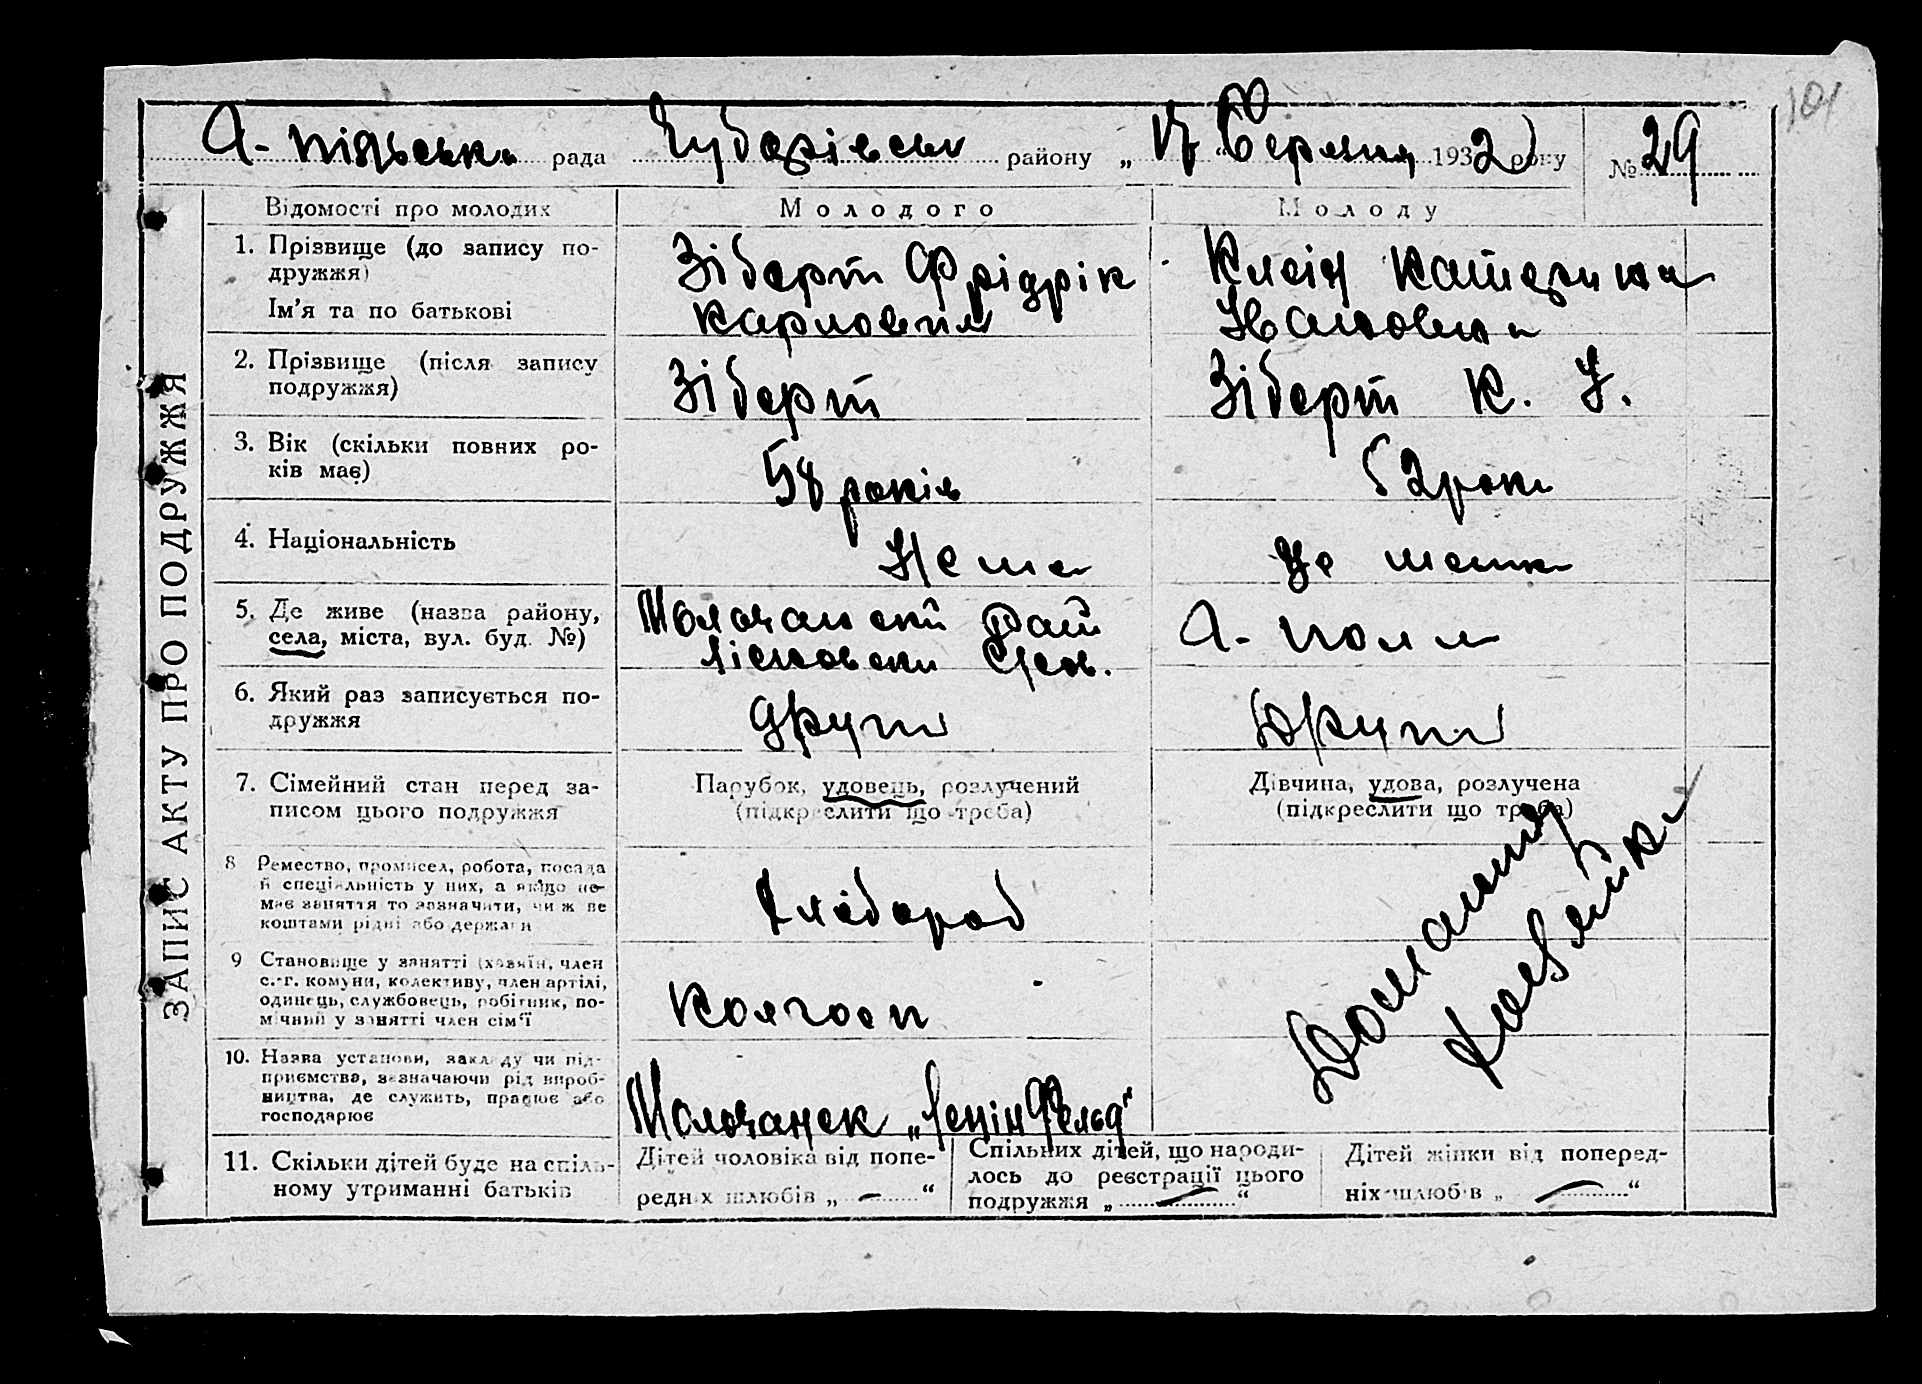 101
А- піільська рада Чубарівськ району „ 17 “ березня 1932 року № 29
Відомості про молодих Молодого Молоду
1. Прізвище (до запису подружжя)
Ім'я та по батькові
Зіберт Фрідрік
Карлович
Клейн Катерина
2. Прізвище (після запису
подружжя)
Зіберт
Зіберт К. І.
3. Вік (скільки повних ро-
ків має)
58 років
52 роки
4. Національність
5. Де живе (назва району,
села, міста, вул. буд. №)
А- поль
6. Який раз записується по-
дружжя
другий
Другий
7. Сімейний стан перед за-
писом цього подружжя
Парубок, удовець, розлучений
(підкреслити що треба)
Дівчина, удова, розлучена
(підкреслити що треба)
8 Ремество, промисел, робота, посада
й спеціальність у них, а якщо не-
має заняття то зазначити, чи ж не
коштами рідні або держави
Хлібороб
Домашня
9 Становище у занятті (хазяїн, член
с.-г. комуни, колективу, член артілі,
одинець, службовець, робітник, по-
мічний у занятті член сім'ї
Колгосп
10. Назва установи, закладу чи під-
приємства, зазначаючи рід вироб-
ництва, де служить, працює або
господарює
Молочанск „Ленінфельд“
11. Скільки дітей буде на спіль-
ному утриманні батьків
Дітей чоловіка від попе-
редніх шлюбів „ — “
Спільних дітей, що народи-
лось до реєстрації цього
подружжя „ — “
Дітей жінки від поперед-
ніх шлюбів „ — “
ЗАПИС АКТУ ПРО ПОДРУЖЖЯ